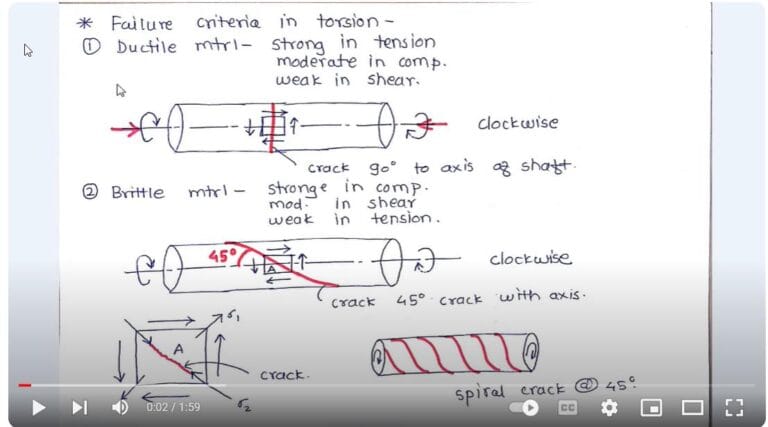 * Failure criteria in torsion -
① Ductile mtrl - strong in tension
moderate in comp.
weak in shear.
clockwise
crack 90° to axis of shaft.
② Brittle mtrl - stronge in comp.
mod. in shear
weak in tension.
45°
A
clockwise
crack 45° crack with axis.
σ1
A
crack.
σ2
spiral crack @ 45°
0:02 / 1:59
CC